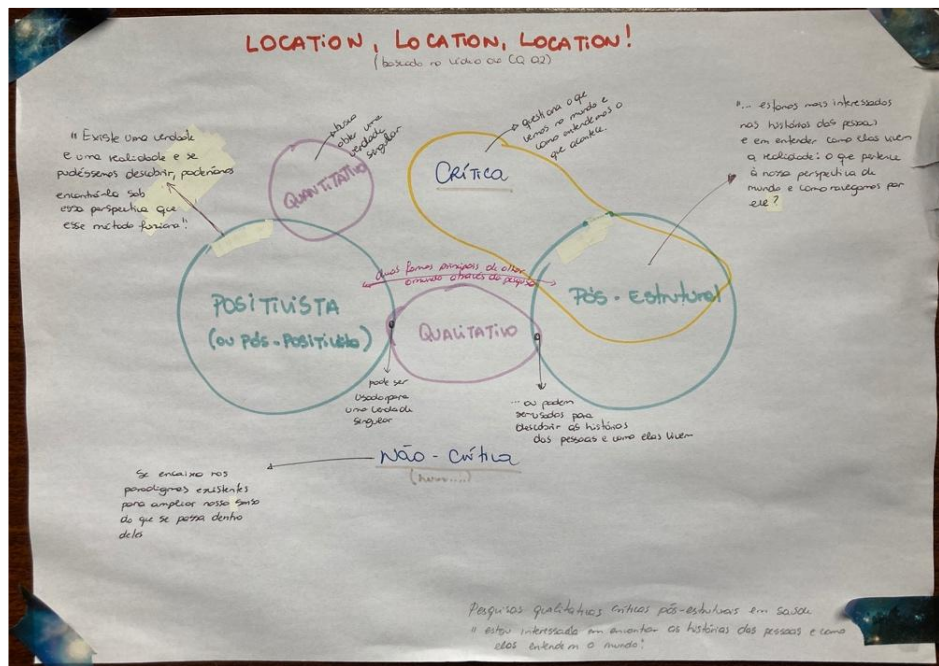 LOCATION, LOCATION, LOCATION!
(baseado no vídeo do CQ 02)
"Existe uma verdade
e uma realidade e se
pudéssemos descobrir, poderíamos
encontrá-la sob
essa perspectiva que
esse método funciona!"
busca
obter uma
verdade
singular
QUANTITATIVO
questiona o que
vemos no mundo e
como entendemos o
que acontece.
CRÍTICA
"... estamos mais interessados
nas histórias das pessoas
e em entender como elas vivem
a realidade: o que pertence
à nossa perspectiva de
mundo e como navegamos por
ele?
duas formas principais de olhar
o mundo através da pesquisa
POSITIVISTA
(OU PÓS-POSITIVISTA)
QUALITATIVO
PÓS-Estrutural
pode ser
usado para
uma verdade
singular
... ou podem
ser usados para
descobrir as histórias
das pessoas e como elas vivem
NÃO-CRÍTICA
Se encaixa nos
paradigmas existentes
para ampliar nosso senso
do que se passa dentro
deles
Pesquisas qualitativas críticas pós-estruturais em saúde
"estou interessada em encontrar as histórias das pessoas e como
elas entendem o mundo!